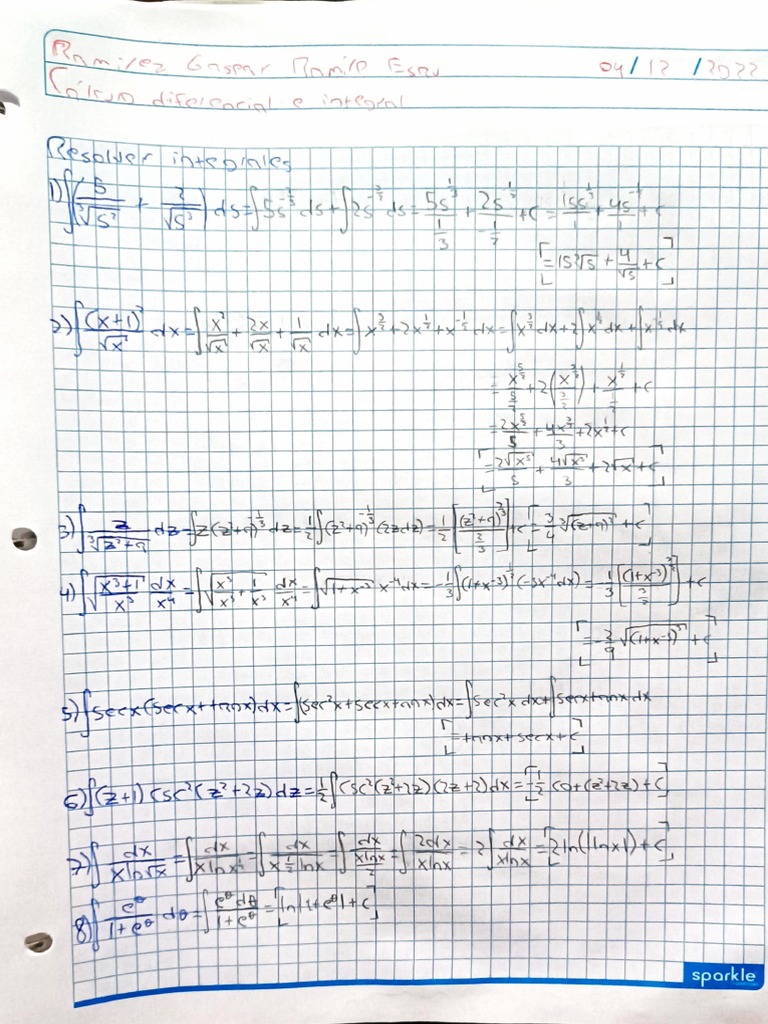 Ramirez Gaspar Ramiro Esau 04/12/2022
Cálculo diferencial e integral
Resolver integrales
1) ∫(5/∛s² + 2/√s³) ds = ∫5s^(-2/3) ds + ∫2s^(-3/2) ds = 5s^(1/3)/(1/3) + 2s^(-1/2)/(-1/2) + c = 15s^(1/3)/1 + 4s^(-1/2)/1 + c
[= 15∛s + 4/√s + c]
2) ∫(x+1)²/√x dx = ∫x²/√x + 2x/√x + 1/√x dx = ∫x^(3/2) + 2x^(1/2) + x^(-1/2) dx = ∫x^(3/2) dx + 2∫x^(1/2) dx + ∫x^(-1/2) dx
= x^(5/2)/(5/2) + 2(x^(3/2)/(3/2)) + x^(1/2)/(1/2) + c
= 2x^(5/2)/5 + 4x^(3/2)/3 + 2x^(1/2) + c
[= 2√x⁵/5 + 4√x³/3 + 2√x + c]
3) ∫z/∛(z²+9) dz = ∫z(z²+9)^(-1/3) dz = 1/2∫(z²+9)^(-1/3) (2z dz) = 1/2[(z²+9)^(2/3)/(2/3)] + c [= 3/4 ∛(z+9)² + c]
4) ∫√((x³+1)/x³) dx/x⁴ = ∫√(x³/x³ + 1/x³) dx/x⁴ = ∫√(1+x⁻³) x⁻⁴ dx = -1/3∫(1+x-3)^(1/2) (-3x⁻⁴dx) = -1/3[(1+x⁻³)^(3/2)/(3/2)] + c
[= -2/9 √(1+x-3)³ + c]
5) ∫secx(secx+tanx)dx = ∫(sec²x+secx+tanx)dx = ∫sec²x dx + ∫secx+tanx dx
[= tanx+secx+c]
6) ∫(z+1) csc²(z²+2z) dz = 1/2∫csc²(z²+2z)(2z+2)dx = [-1/2 cot(z²+2z)+c]
7) ∫dx/(xln√x) = ∫dx/(xlnx^(1/2)) = ∫dx/(x 1/2 lnx) = ∫dx/(xlnx/2) = ∫2dx/(xlnx) = 2∫dx/(xlnx) = [2ln(|lnx|)+c]
8) ∫e^θ/(1+e^θ) dθ = ∫e^θ dθ/(1+e^θ) = [ln|1+e^θ|+c]
sparkle